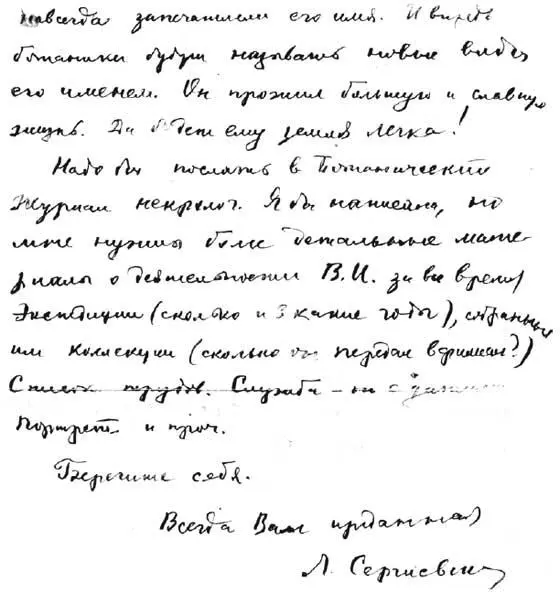 навсегда запечатлели его имя. И впредь
ботаники будут называть новые виды
его именем. Он прожил большую и славную
жизнь. Да будет ему земля легка!
Надо бы послать в Ботанический
Журнал некролог. Я бы написала, но
мне нужны более детальные мате-
риалы о деятельности В.И. за все время
Экспедиции (сколько и в какие годы), собранные
им коллекции (сколько он передал в филиал?)
Список трудов. Служба –
Портрет и проч.
Берегите себя.
Всегда Вам преданная
Л. Сергиевская